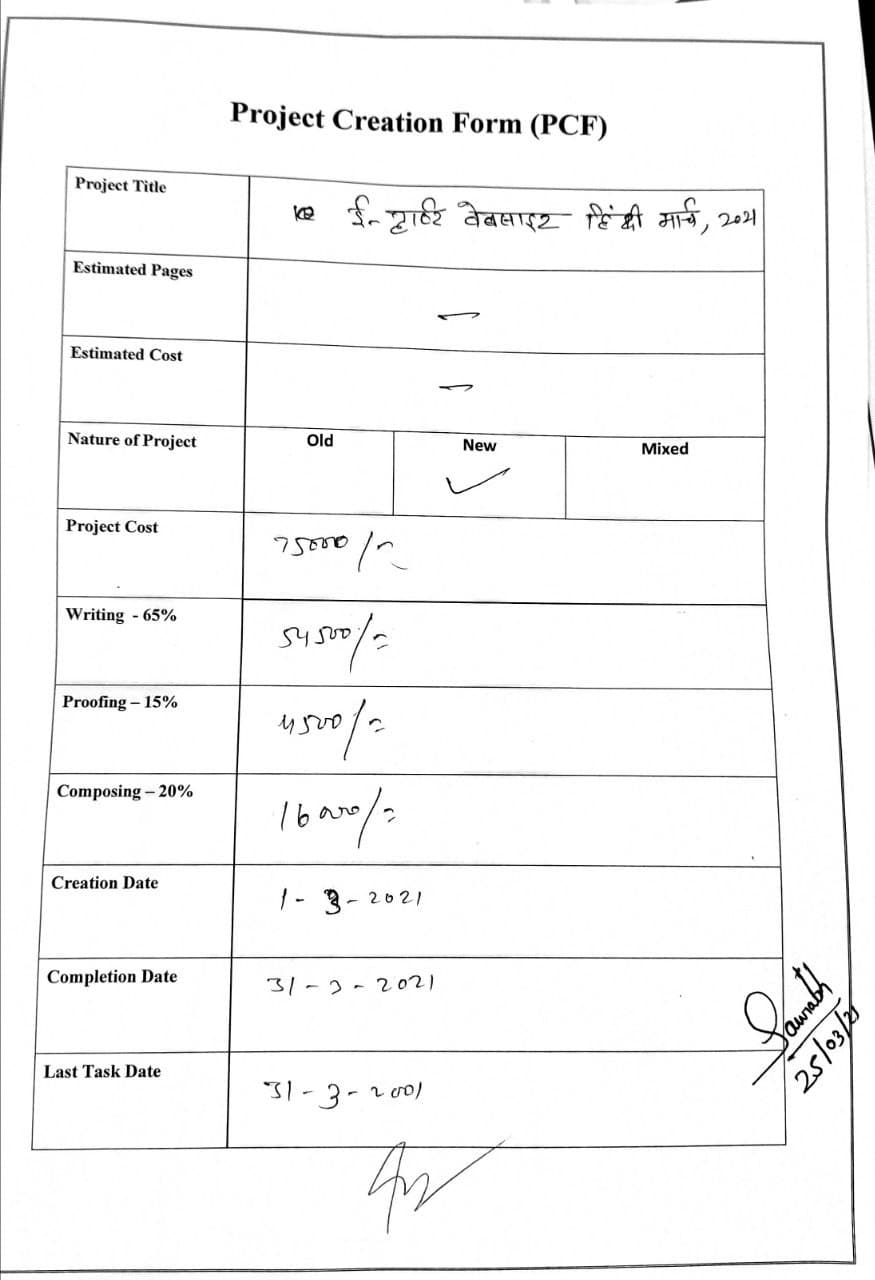 Project Creation Form (PCF)
Project Title
ई- वेबसाइट हिंदी मार्च, 2021
Estimated Pages
—
Estimated Cost
—
Nature of Project Old New Mixed
✓
Project Cost 75000/-
Writing - 65% 54500/=
Proofing – 15% 4500/=
Composing – 20% 16000/=
Creation Date 1-3-2021
Completion Date 31-3-2021
Saurabh
25/03/21
Last Task Date 31-3-2001